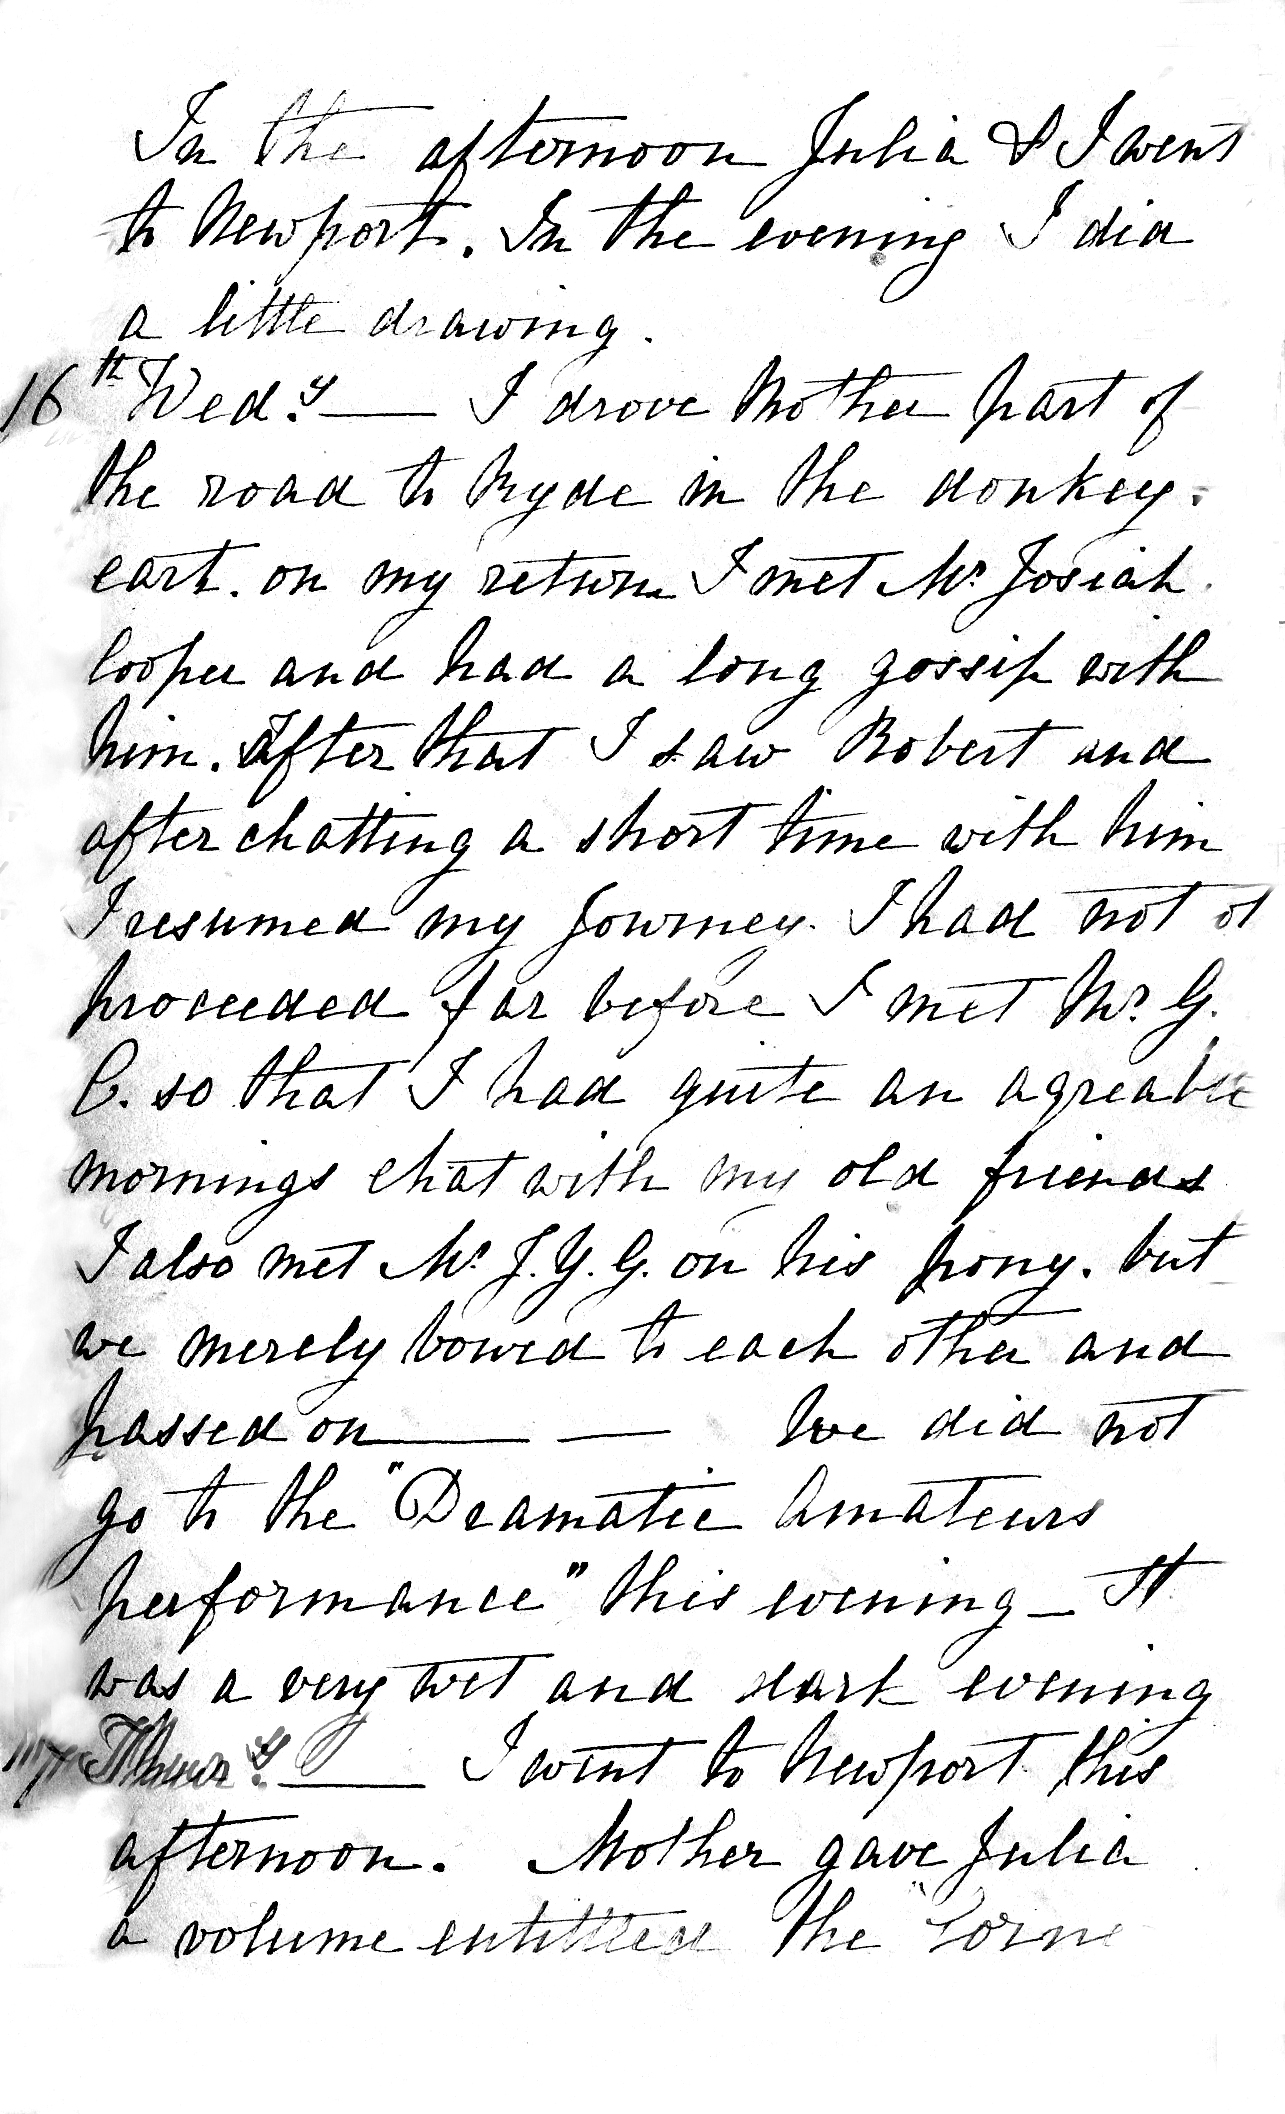 In the afternoon Julia & I went
to Newport. In the evening I did
a little drawing.
16th Wed.y — I drove Mother part of
the road to Ryde in the donkey-
cart. on my return I met Mr Josiah
Cooper and had a long gossip with
him. After that I saw Robert and
after chatting a short time with him
I resumed my journey. I had not
proceeded far before I met Mr. G.
C. so that I had quite an agreable
mornings chat with my old friends
I also met Mr J. Y. G. on his pony. but
we merely bowed to each other and
passed on — — We did not
go to the "Dramatic Amateurs
performance" this evening — It
was a very wet and dark evening
17 Thur.y — I went to Newport this
afternoon. Mother gave Julia
a volume entitled the "Corn